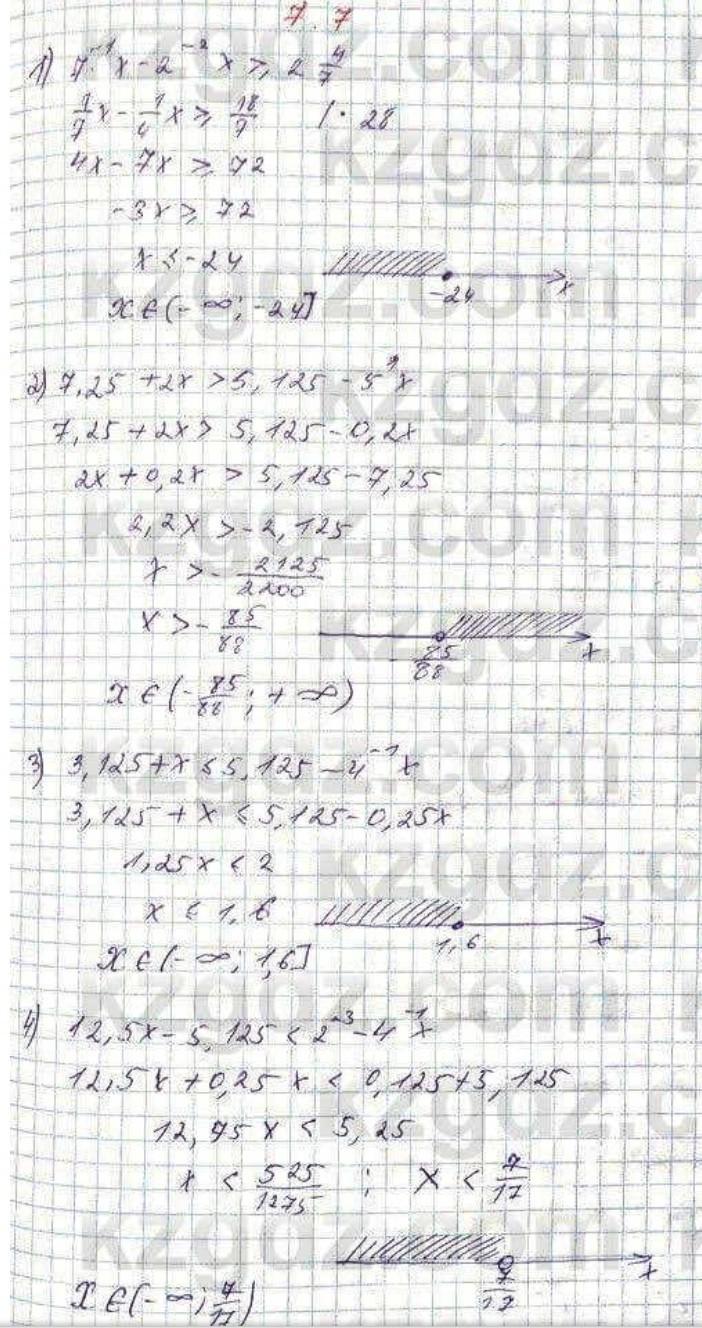 7.7
1) 7⁻¹x - 2⁻²x ⩾ 2 4/7
1/7 x - 1/4 x ⩾ 18/7 | · 28
4x - 7x ⩾ 72
-3x ⩾ 72
x ⩽ -24
-24 x
x ∈ (-∞; -24]
2) 7,25 + 2x > 5,125 - 5⁻¹x
7,25 + 2x > 5,125 - 0,2x
2x + 0,2x > 5,125 - 7,25
2,2x > -2,125
x > - 2125/2200
x > - 85/88
-85/88 x
x ∈ (-85/88; +∞)
3) 3,125 + x ⩽ 5,125 - 4⁻¹x
3,125 + x ⩽ 5,125 - 0,25x
1,25x ⩽ 2
x ⩽ 1,6
1,6 x
x ∈ (-∞; 1,6]
4) 12,5x - 5,125 < 2⁻³ - 4⁻¹x
12,5x + 0,25x < 0,125 + 5,125
12,75x < 5,25
x < 525/1275 ; x < 7/17
7/17 x
x ∈ (-∞; 7/17)
kzgdz.com